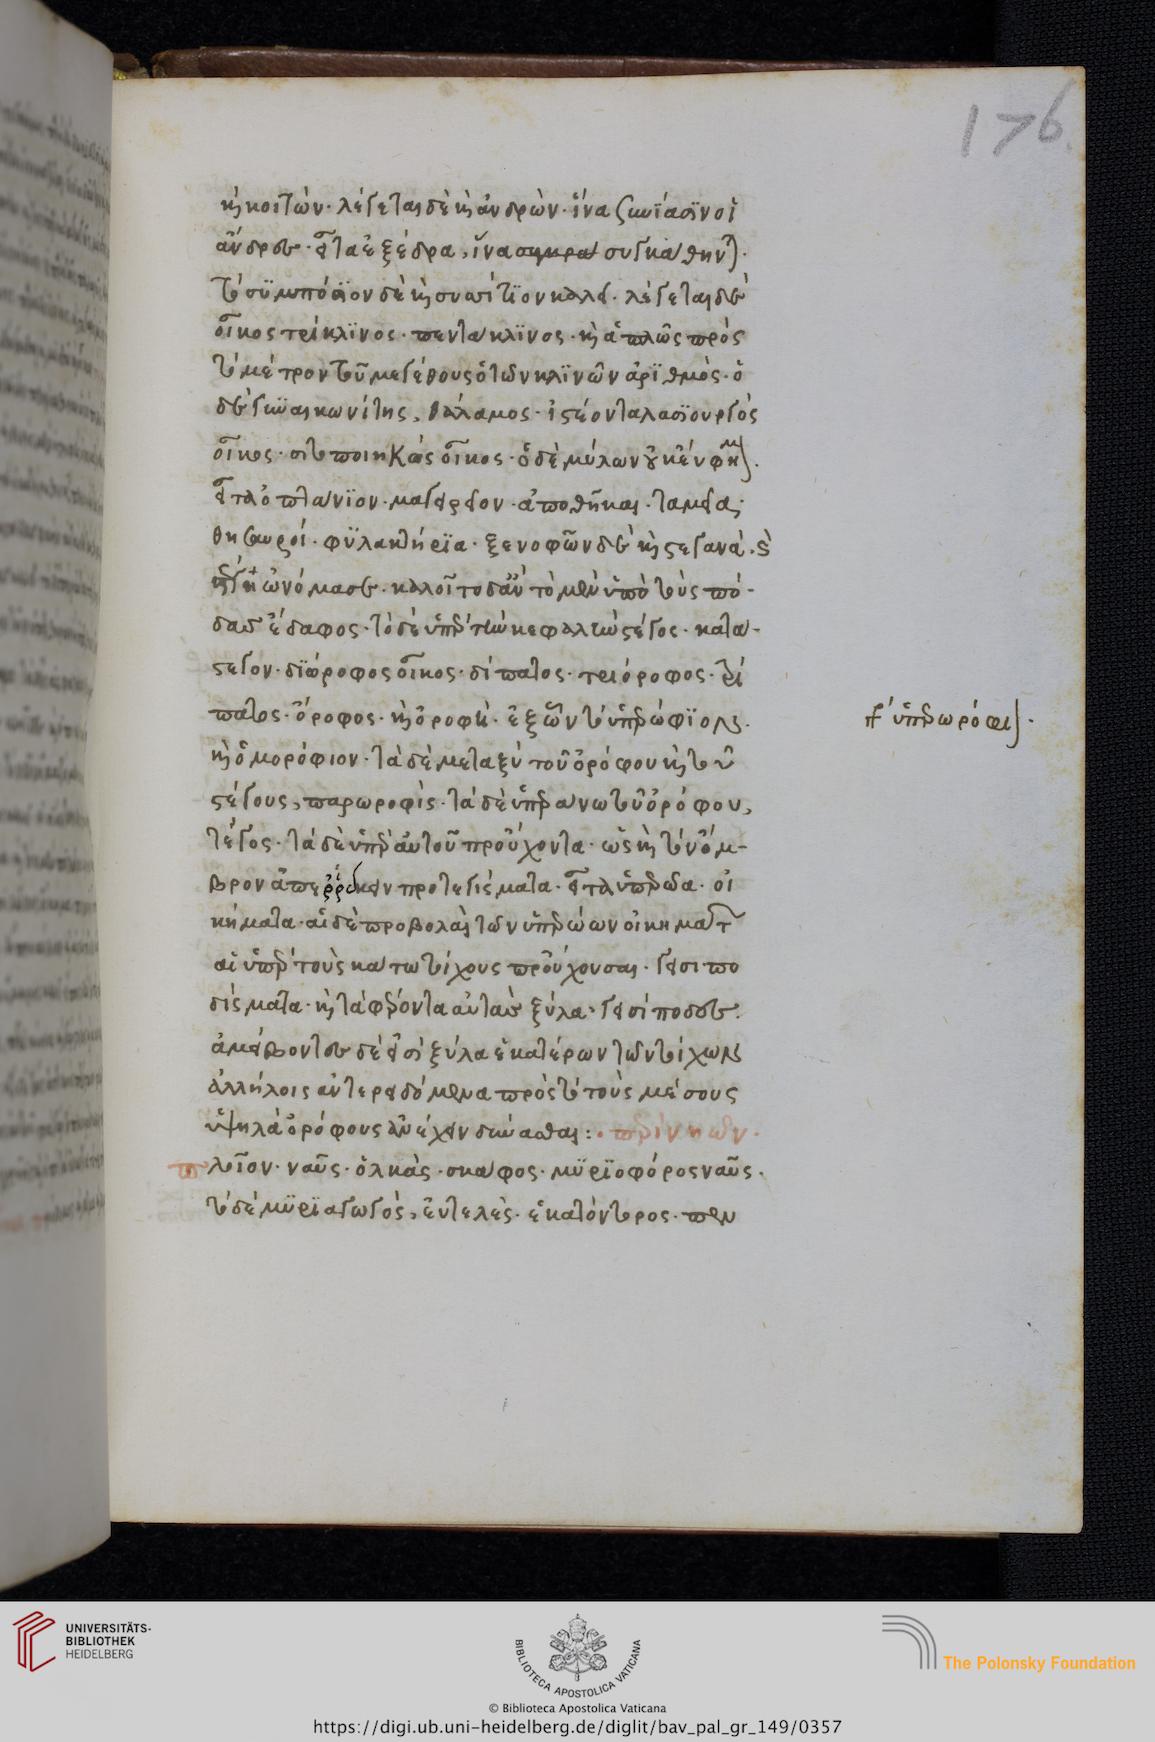 176
κ(αὶ) κοιτών· λέγεται δὲ κ(αὶ) ἀνδρὼν· ἵνα ζωνΐασϊν οἱ
ἄνδρες· εἶτα ἐξέδρα, ἵνα συγκάθηντ(αι)·
τὸ σϋμπόσϊον δὲ κ(αὶ) συσσίτϊον καλεῖ· λέγεται δὲ
οἶκος τρίκλϊνος· πεντάκλϊνος· κ(αὶ) ἁπλῶς πρὸς
τὸ μέτρον τοῦ μεγέθους ὁ τῶν κλϊνῶν ἀρϊθμὸς· ὁ
δὲ γυναικωνίτης, θάλαμος· ἱστέον ταλασϊουργὸς
οἶκος· σιτοποιηκὸς οἶκος· ὁ δὲ μύλων οὐκ εὔφημ(ον)·
εἶτα ὀπτανϊον· μαγειρεῖον· ἀποθῆκαι· ταμεῖα,
θησαυροί· φϋλακτήρϊα· ξενοφῶν δὲ κ(αὶ) στεγανὰ·
ὠνόμασε· καλοῖτο δ' ἂν τὸ μὲν ὑπὸ τοὺς πό-
δας ἔδαφος· τὸ δὲ ὑπὲρ τὴν κεφαλὴν στέγος· κατά-
στεγον· διώροφος οἶκος· δίπατος· τριόροφος· τρί
πατος· ὄροφος· κ(αὶ) ὀροφὴ· ἐξ ὧν τὸ ὑπερώφϊον·
γρ(άφεται) ὑπερωρόφι(ον)·
κ(αὶ) ὁμορόφιον· τὰ δὲ μεταξὺ τοῦ ὀρόφου κ(αὶ) τοῦ
στέγους, παρωροφὶς· τὰ δὲ ὑπεράνω τοῦ ὀρόφου,
τέγος· τὰ δὲ ὑπὲρ αὐτοῦ προὔχοντα· ὡς κ(αὶ) τὸν ὄμ-
βρον ἀπερύκειν προτεγίσματα· εἶτα ὑπερῶα· οἰ
κήματα· αἱ δὲ προβολαὶ τῶν ὑπερώων οἰκημάτ(ων)
αἱ ὑπὲρ τοὺς κάτω τοίχους προὔχουσαι· γεισιπο
δίσματα· κ(αὶ) τὰ φέροντα αὐτὰς ξύλα· γεισίποδες·
ἀμείβοντες δέ εἰσι ξύλα ἑκατέρων τῶν τοίχων
ἀλλήλοις ἀντερειδόμενα πρὸς τὸ τοὺς μέσους
ὑψηλὰ ὀρόφους ἀνέχειν δύνασθαι: · περὶ νηῶν·
πλοῖον· ναῦς· ὁλκὰς· σκάφος· μϋρϊοφόρος ναῦς·
τὸ δὲ μϋρϊαγωγὸς, ἐντελὲς· ἑκατόντορος· πεν
UNIVERSITÄTS-
BIBLIOTHEK
HEIDELBERG
BIBLIOTECA APOSTOLICA VATICANA
© Biblioteca Apostolica Vaticana
The Polonsky Foundation
https://digi.ub.uni-heidelberg.de/diglit/bav_pal_gr_149/0357